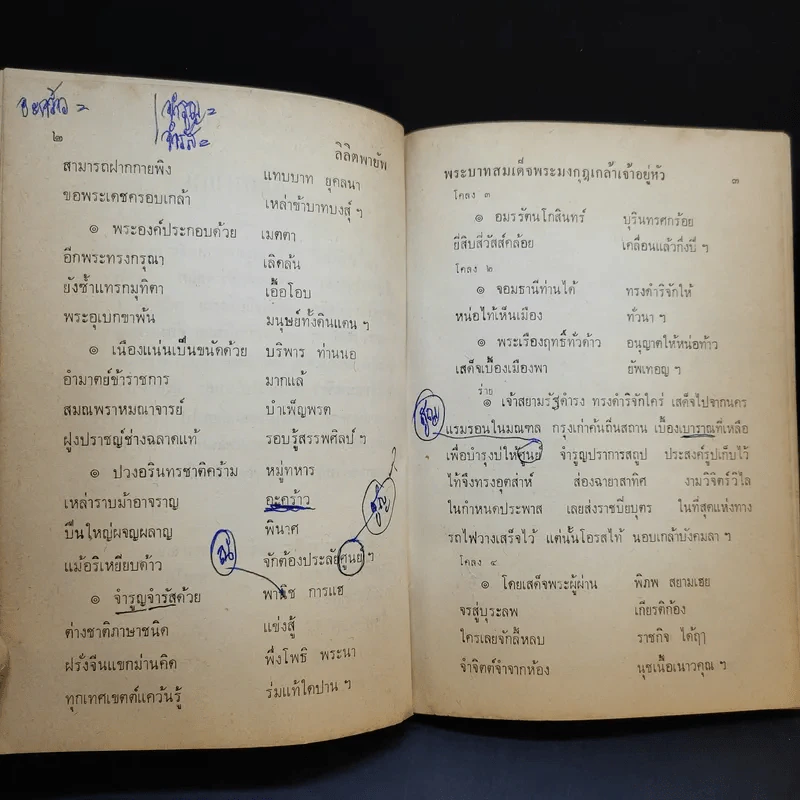 อะคร้าว =
จำรูญ =
จำรัส =
๒
ลิลิตพายัพ
สามารถฝากกายพิง แทบบาท ยุคลนา
ขอพระเดชครอบเกล้า เหล่าข้าบาทบงสุ์ ฯ
๑ พระองค์ประกอบด้วย เมตตา
อีกพระทรงกรุณา เลิศล้น
ยังซ้ำแทรกมุทิตา เอื้อโอบ
พระอุเบกขาพ้น มนุษย์ทั้งดินแดน ฯ
๑ เนืองแน่นเป็นขนัดด้วย บริพาร ท่านนอ
อำมาตย์ข้าราชการ มากแล้
สมณพราหมณาจารย์ บำเพ็ญพรต
ฝูงปราชญ์ช่างฉลาดแท้ รอบรู้สรรพศิลป์ ฯ
๑ ปวงอรินทรชาติคร้าม หมู่ทหาร
เหล่าราบม้าอาจราญ อะคร้าว
ปืนใหญ่ผจญผลาญ พินาศ
แม้อริเหยียบด้าว จักต้องประลัยศูนย์ ฯ
สูญ
ณิ
๑ จำรูญจำรัสด้วย พานิช การแฮ
ต่างชาติภาษาชนิด แข่งสู้
ฝรั่งจีนแขกม่านคิด พึ่งโพธิ พระนา
ทุกเทศเขตต์แคว้นรู้ ร่มแท้ใดปาน ฯ
พระบาทสมเด็จพระมงกุฎเกล้าเจ้าอยู่หัว
๓
โคลง ๓
๑ อมรรัตนโกสินทร์ บุรินทรศกร้อย
ยี่สิบสี่วัสส์คล้อย เคลื่อนแล้วกึ่งปี ฯ
โคลง ๒
๑ จอมธานีท่านไต้ ทรงดำริจักให้
หน่อไท้เห็นเมือง ทั่วนา ฯ
๑ พระเรืองฤทธิ์ทั่วด้าว อนุญาตให้หน่อท้าว
เสด็จเบื้องเมืองพา ยัพเทอญ ฯ
ร่าย
๑ เจ้าสยามรัฐดำรง ทรงดำริจักใคร่ เสด็จไปจากนคร
สูญ
แรมรอนในมณฑล กรุงเก่าค้นถิ่นสถาน เบื้องเบาราณที่เหลือ
เพื่อบำรุงบ่ให้ศูนย์ จำรูญปราการสถูป ประสงค์รูปเก็บไว้
ไท้จึงทรงอุตส่าห์ ส่องฉายาสาทิศ งามวิจิตร์วิไล
ในกำหนดประพาส เลยส่งราชปิยบุตร ในที่สุดแห่งทาง
รถไฟวางเสร็จไว้ แต่นั้นโอรสไท้ นอบเกล้าบังคมลา ฯ
โคลง ๔
๑ โดยเสด็จพระผู้ผ่าน พิภพ สยามเฮย
จรสู่บุระลพ เกียรติก้อง
ใครเลยจักลี้หลบ ราชกิจ ได้ฤๅ
จำจิตต์จำจากห้อง นุชเนื้อเนาวคุณ ฯ